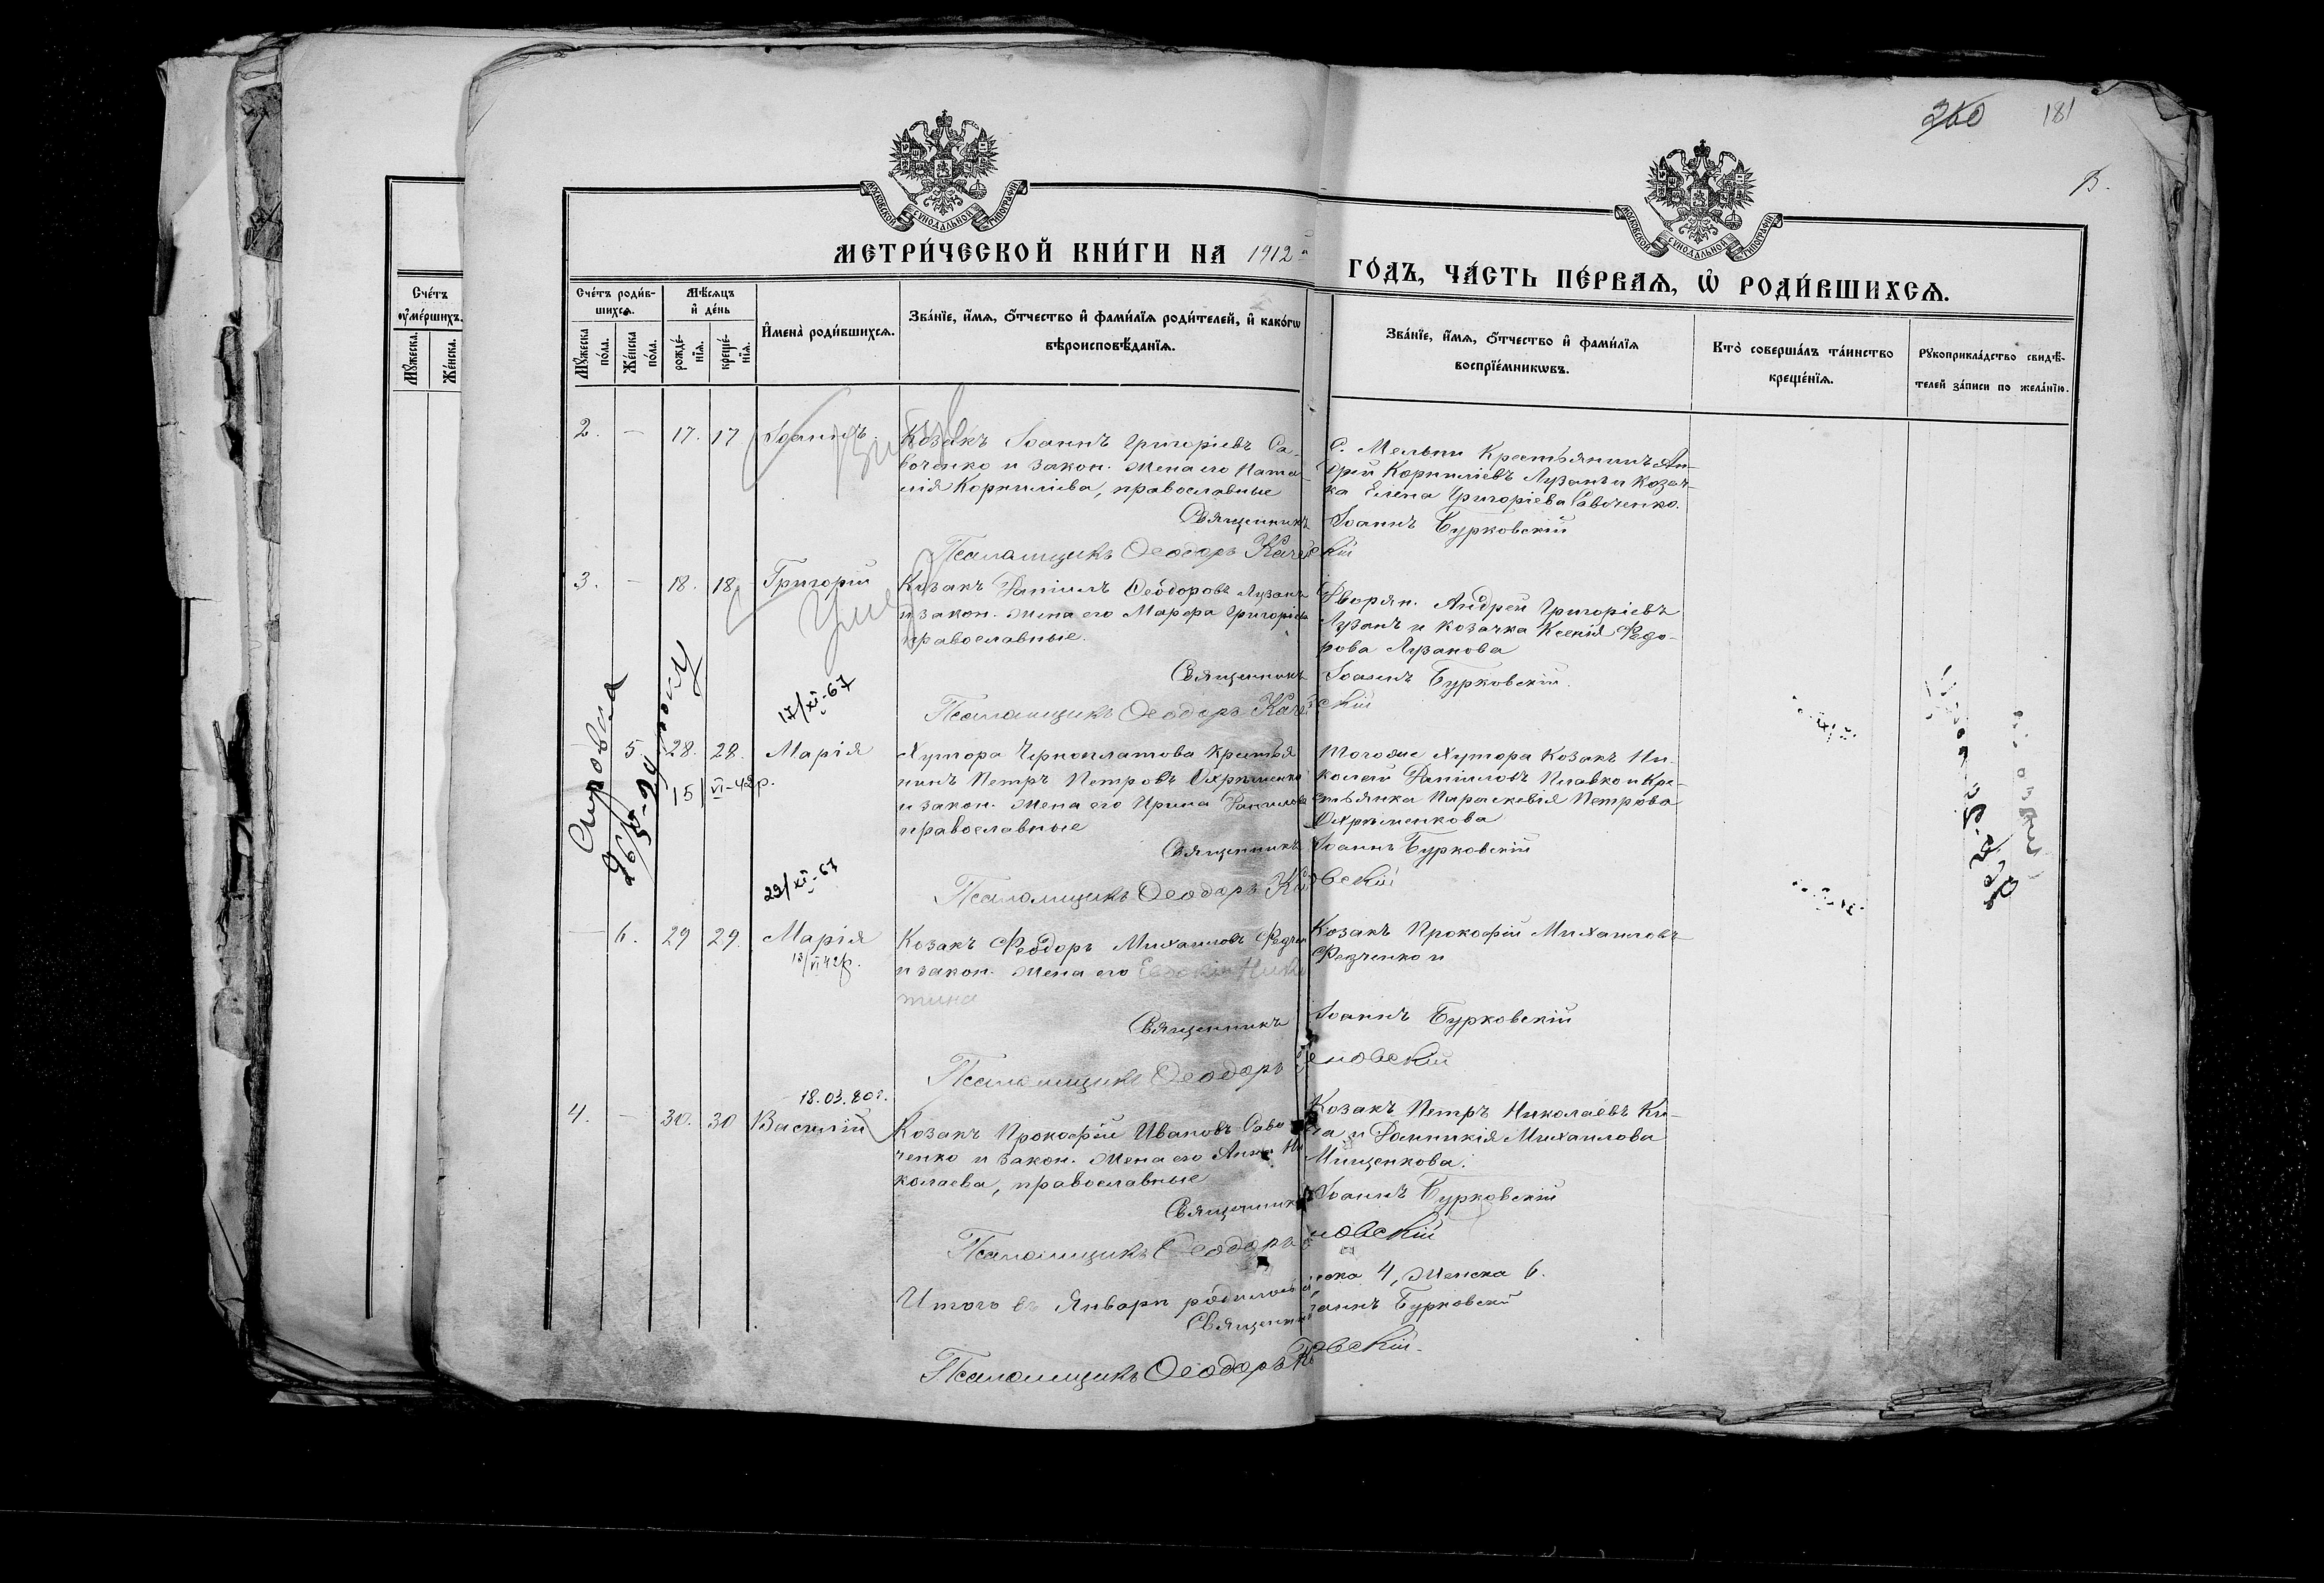 260 181
В.
МОСКОВСКОЙ СѴНОДАЛЬНОЙ ТИПОГРАФІИ
МОСКОВСКОЙ СѴНОДАЛЬНОЙ ТИПОГРАФІИ
МЕТРИ́ЧЕСКОЙ КНИ́ГИ НА 1912 й
ГО́ДЪ, ЧА́СТЬ ПЕ́РВАѦ, Ѡ҆ РОДИ́ВШИХСѦ.
Сче́тъ ᲂу҆ме́ршихъ.
Мꙋ́жеска.
Же́нска.
Сче́тъ роди́в-
шихсѧ.
Мꙋ́жеска по́ла.
Же́нска по́ла.
Мѣ́сѧцъ
и҆ де́нь
рожде́-нїѧ.
креще́-нїѧ.
И҆мена̀ роди́вшихсѧ.
Зва́нїе, и҆́мѧ, ѻ҆́тчество и҆ фами́лїѧ роди́телей, и҆ како́гѡ
вѣроисповѣ́данїѧ.
Зва́нїе, и҆́мѧ, ѻ҆́тчество и҆ фами́лїѧ
воспрїе́мникѡвъ.
Кто̀ соверша́лъ та́инство
креще́нїѧ.
Рꙋкоприкла́дство свидѣ́-
телей за́писи по жела́нїю.
2. — 17. 17 Іоаннъ
Козакъ Іоаннъ Григоріевъ Са-
вченко и закон. жена его Ната-
лія Корниліева, православные
С. Мельни Крестьянинъ Ан-
дрей Корниліевъ Лузанъ и козач-
ка Елена Григоріева Савченко.
Священникъ Іоаннъ Бурковскій
Псаломщикъ Ѳеодоръ
3. — 18. 18. Григорій
Козакъ Даніилъ Ѳеодоровъ Лузанъ
и закон. жена его Марѳа Григоріева
православные.
Дворян. Андрей Григоріевъ
Лузанъ и козачка Ксенія Федо-
рова Лузанова
Священникъ Іоаннъ Бурковскій.
17/XI-67
Псаломщикъ Ѳеодоръ
5. 28. 28. Марія
15/VI-42р.
26/V-29
Хутора Черноплатова Крестья
нинъ Петръ Петровъ Охрѣменко
и закон. жена его Ирина Даніилова
православные
Тогоже Хутора Козакъ Ни-
колай Даніиловъ Плавко и Кре-
стьянка Параскевія Петрова
Охрѣменкова
Священникъ Іоаннъ Бурковскій
29/XI-67
Псаломщикъ Ѳеодоръ
— 6. 29 29. Марія
13/VI 42р.
Козакъ Ѳеодоръ Михаиловъ Федчен
и закон. жена его Евдокія Ники
тина
Козакъ Прокофій Михаиловъ
Федченко и
Священникъ Іоаннъ Бурковскій
Псаломщикъ Ѳеодоръ
18.03.80г.
4. — 30. 30 Василій
Козакъ Прокофій Ивановъ Сав
ченко и закон. жена его Анна Ни
колаева, православные
Козакъ Петръ Николаевъ
и Домникія Михаилова
Мищенкова.
Священникъ Іоаннъ Бурковскій
Псаломщикъ Ѳеодоръ
Итого въ Январѣ родилось
еска 4, женска 6.
Священникъ Іоаннъ Бурковскій
Псаломщикъ Ѳеодоръ